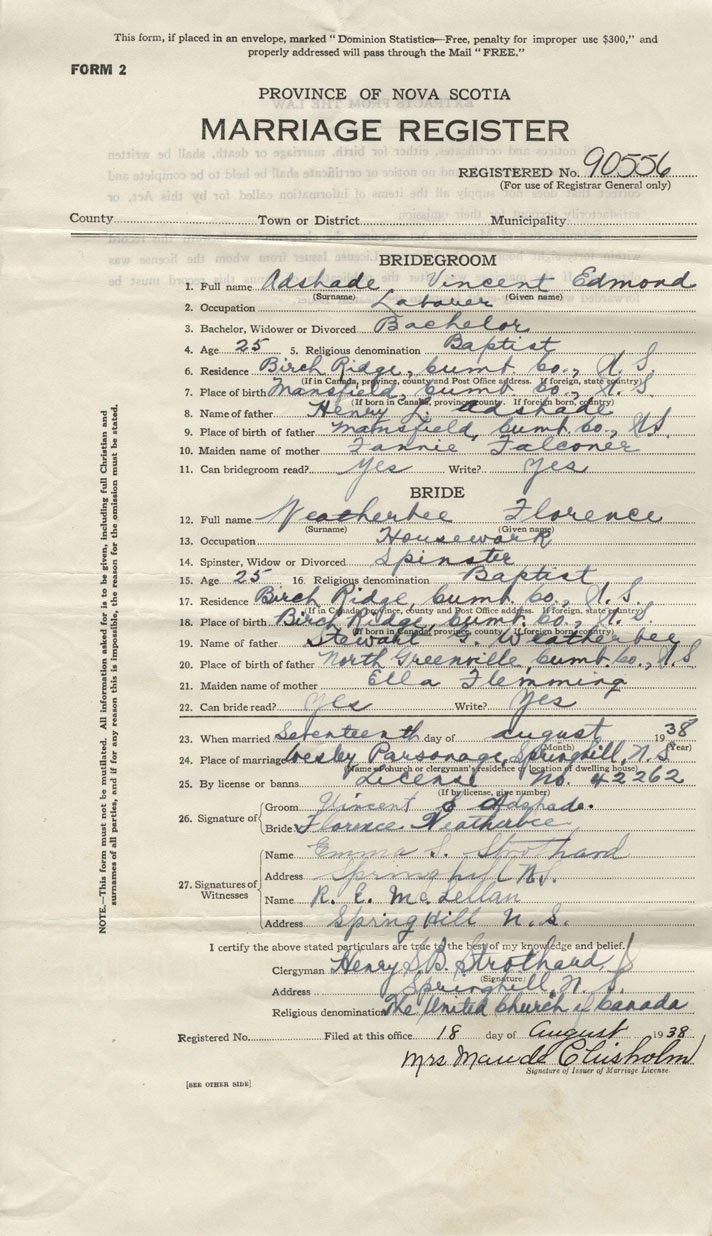 This form, if placed in an envelope, marked "Dominion Statistics—Free, penalty for improper use $300," and
properly addressed will pass through the Mail "FREE."
FORM 2
PROVINCE OF NOVA SCOTIA
MARRIAGE REGISTER
REGISTERED No. 90556
(For use of Registrar General only)
County Town or District Municipality
BRIDEGROOM
1. Full name Adshade Vincent Edmond
(Surname) (Given name)
2. Occupation Laborer
3. Bachelor, Widower or Divorced Bachelor
4. Age 25 5. Religious denomination Baptist
6. Residence Birch Ridge, Cumb. Co., N.S.
(If in Canada, province, county and Post Office address. If foreign, state country)
7. Place of birth Mansfield, Cumb. Co., N.S.
(If born in Canada, province, county. If foreign born, country)
8. Name of father Henry L. Adshade
9. Place of birth of father Mansfield, Cumb. Co., N.S.
10. Maiden name of mother Fannie Falconer
11. Can bridegroom read? Yes Write? Yes
BRIDE
12. Full name Weatherbee Florence
(Surname) (Given name)
13. Occupation Housework
14. Spinster, Widow or Divorced Spinster
15. Age 25 16. Religious denomination Baptist
17. Residence Birch Ridge, Cumb. Co., N.S.
(If in Canada, province, county and Post Office address. If foreign, state country)
18. Place of birth Birch Ridge, Cumb. Co., N.S
(If born in Canada, province, county. If foreign born, country)
19. Name of father Stewart Weatherbee
20. Place of birth of father North Greenville, Cumb. Co., N.S
21. Maiden name of mother Ella Flemming
22. Can bride read? Yes Write? Yes
23. When married Seventeenth day of August 1938
(Month) (Year)
24. Place of marriage Wesley Parsonage, Springhill, N.S
(Name of church or clergyman's residence or location of dwelling house)
25. By license or banns License No. 42262
(If by license, give number)
26. Signature of Groom Vincent E Adshade.
Bride Florence Weatherbee
27. Signatures of Witnesses
Name Emma S. Strothard
Address Springhill N.S.
Name R. E. McLellan
Address Spring Hill N.S.
I certify the above stated particulars are true to the best of my knowledge and belief.
Clergyman Henry S.B. Strothard
(Signature)
Address Springhill, N.S.
Religious denomination The United Church of Canada
Registered No. Filed at this office 18 day of August 1938
Mrs Maude Chisholm
Signature of Issuer of Marriage License.
[SEE OTHER SIDE]
NOTE.—This form must not be mutilated. All information asked for is to be given, including full Christian and
surnames of all parties, and if for any reason this is impossible, the reason for the omission must be stated.